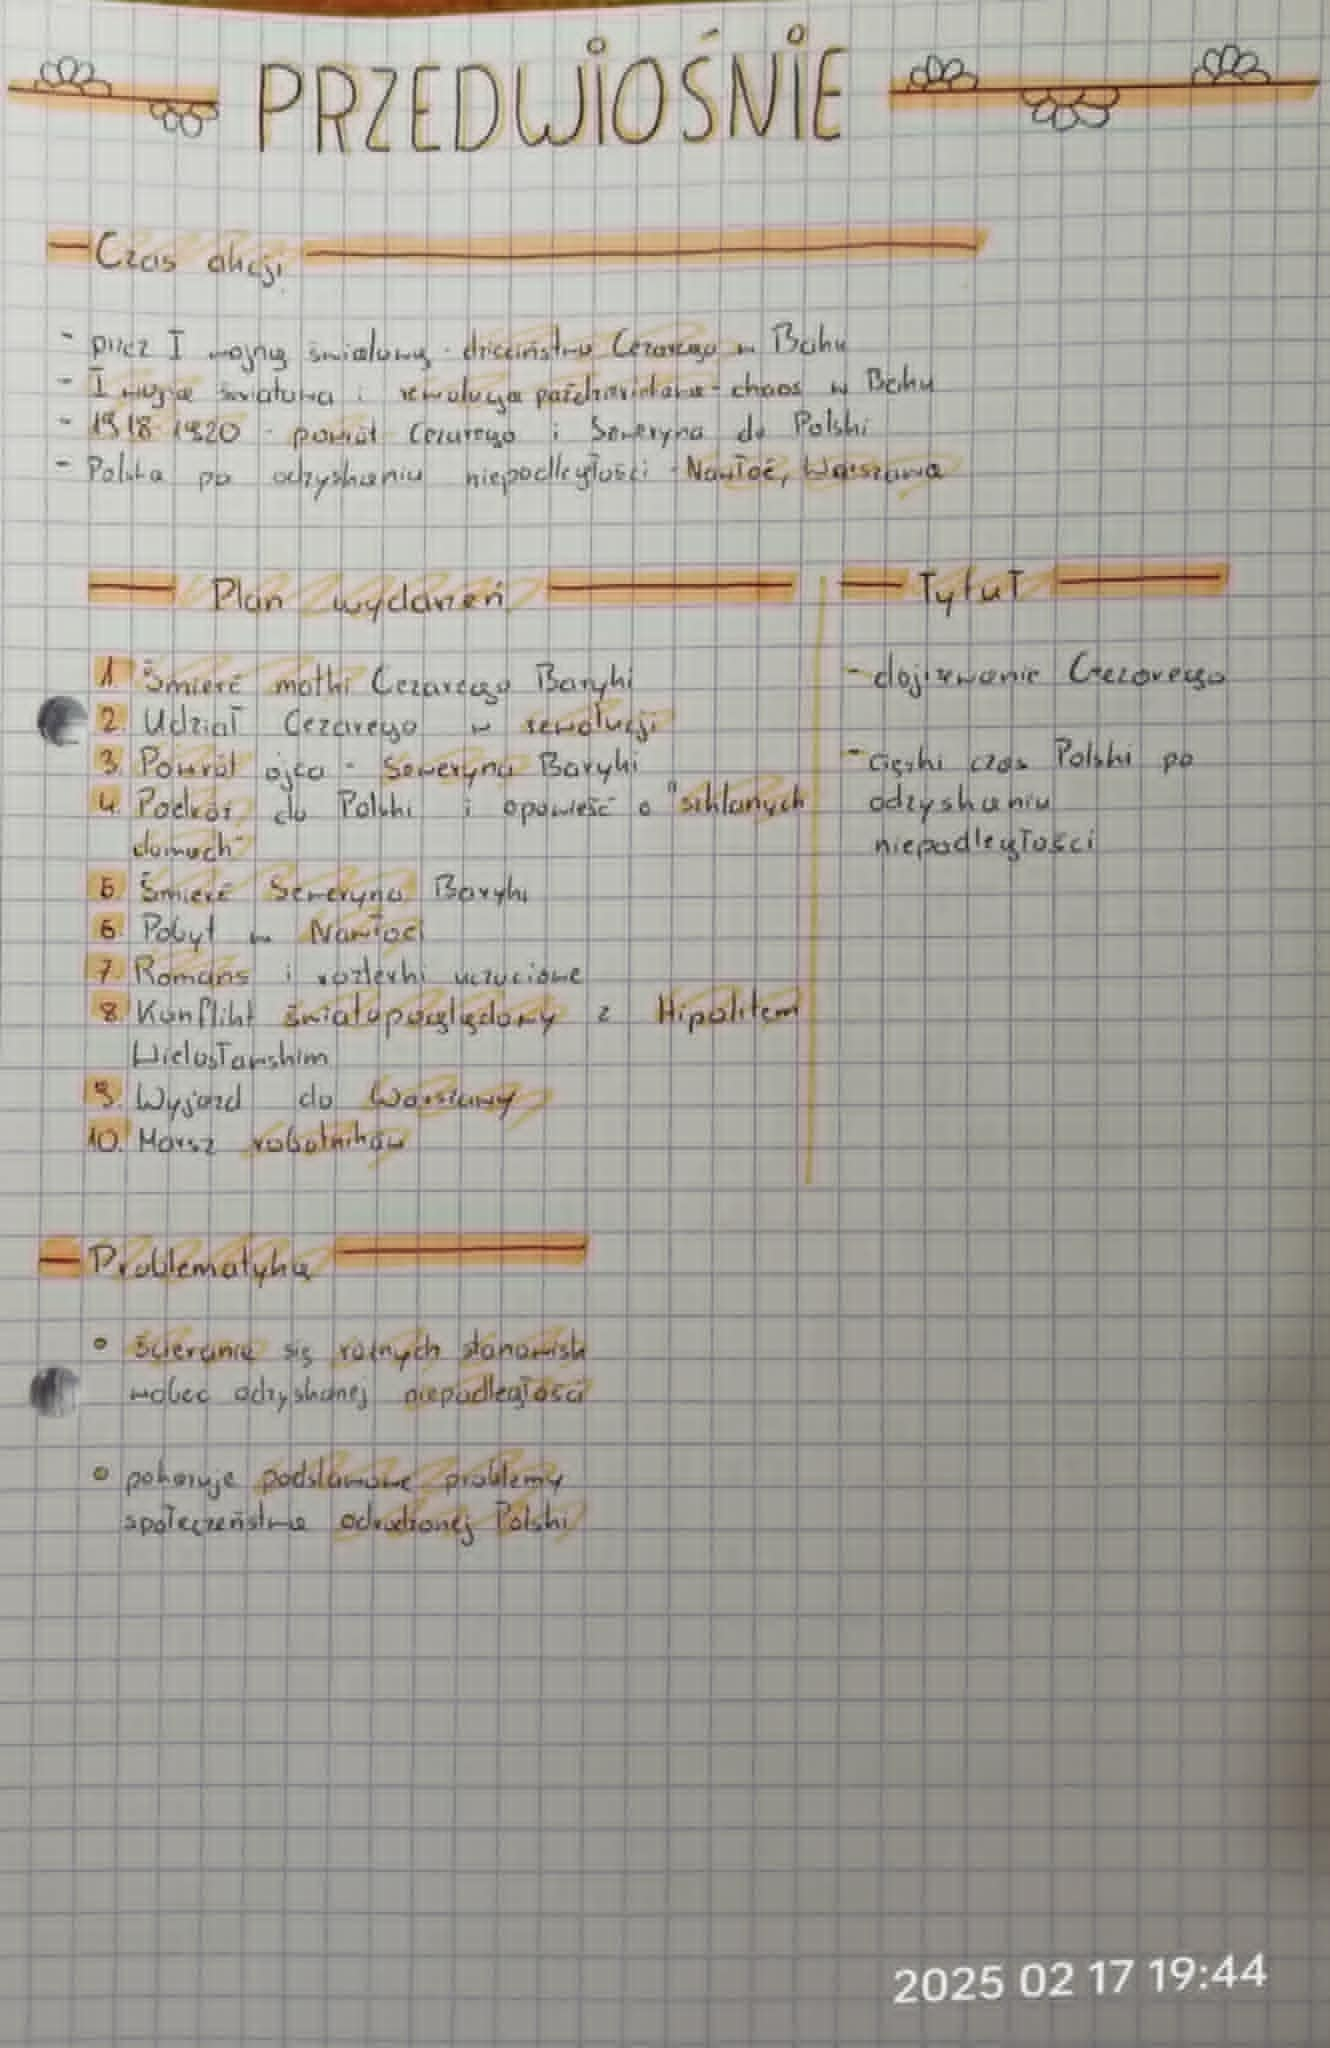 PRZEDWIOŚNIE
Czas akcji
- przez I wojnę światową - dzieciństwo Cezarego w Baku
- I wojna światowa i rewolucja październikowa - chaos w Baku
- 1918-1920 - powrót Cezarego i Seweryna do Polski
- Polska po odzyskaniu niepodległości - Nawłoć, Warszawa
Plan wydarzeń
1. Śmierć matki Cezarego Baryki
2. Udział Cezarego w rewolucji
3. Powrót ojca - Seweryna Baryki
4. Podróż do Polski i opowieść o "szklanych
domach"
5. Śmierć Seweryna Baryki
6. Pobyt w Nawłoci
7. Romans i rozterki uczuciowe
8. Konflikt światopoglądowy z Hipolitem
Wielosławskim
9. Wyjazd do Warszawy
10. Marsz robotników
Tytuł
- dojrzewanie Cezarego
- ciężki czas Polski po
odzyskaniu
niepodległości
Problematyka
° Ścieranie się różnych stanowisk
wobec odzyskanej niepodległości
° pokazuje podstawowe problemy
społeczeństwa odrodzonej Polski
2025 02 17 19:44